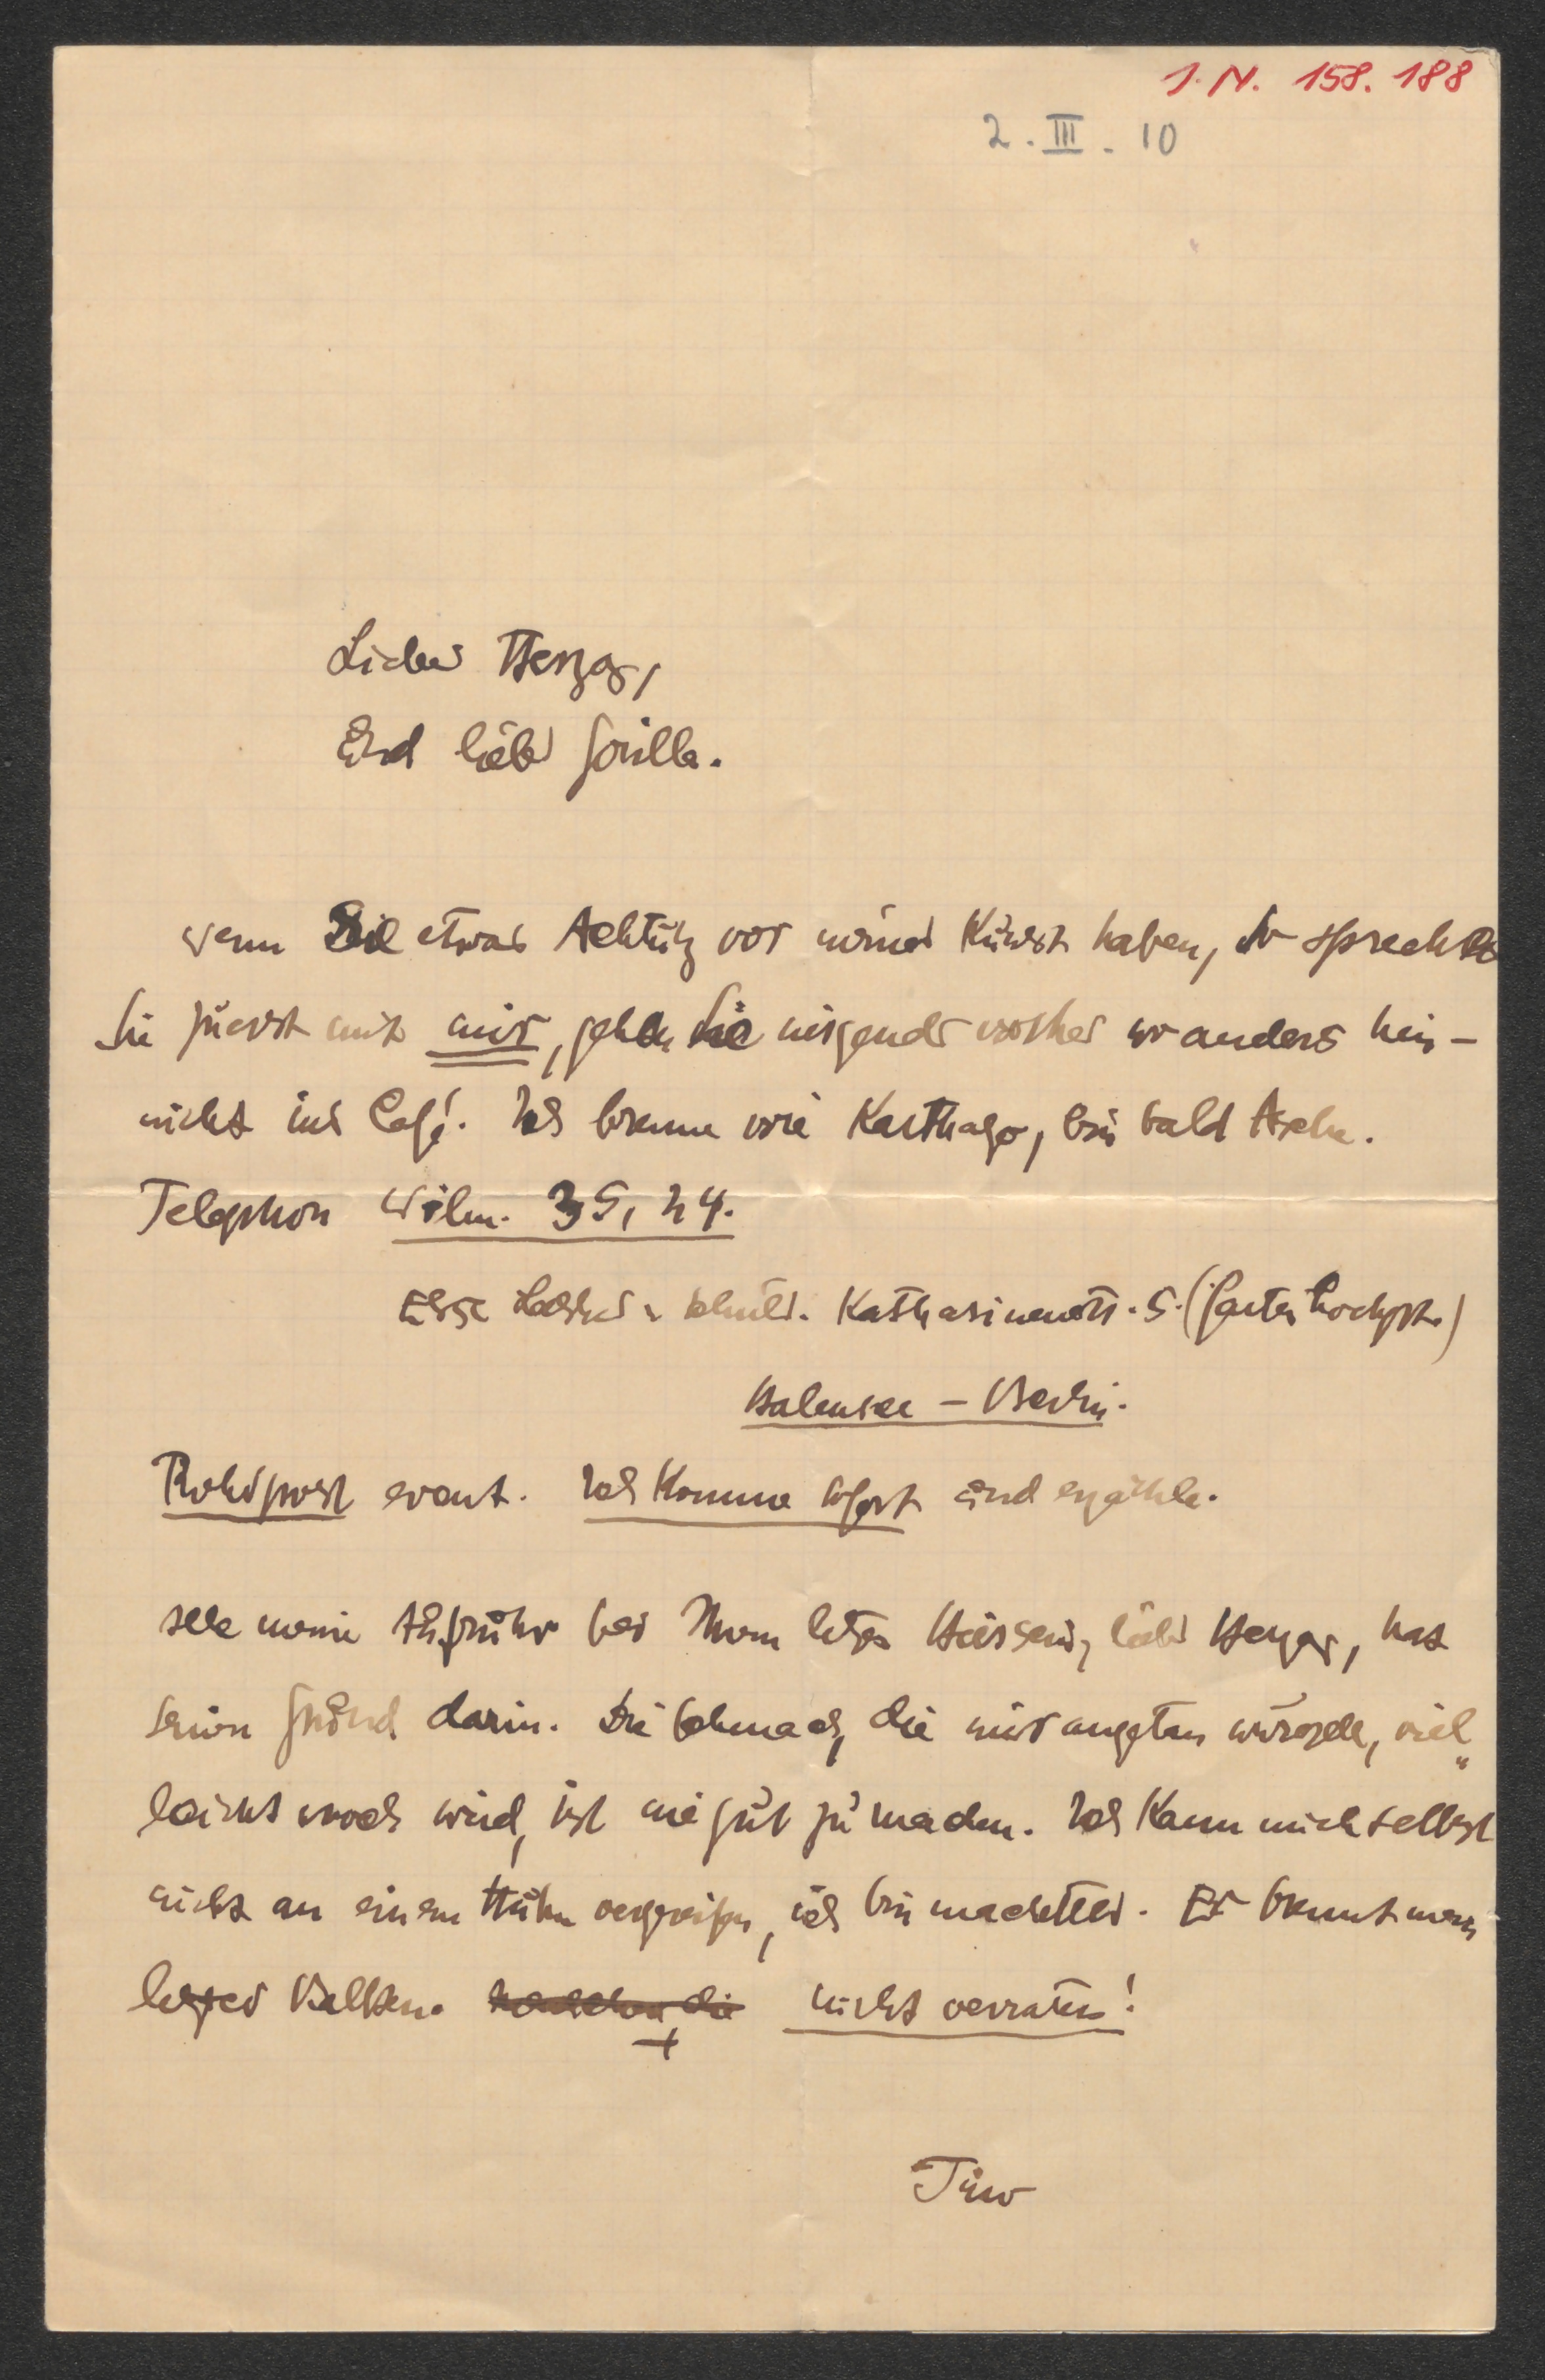 I. N. 158.188
2. III. 10
Lieber Herzog,
Und lieber Gorilla.
wenn Sie etwas Achtung vor meiner Kunst haben, so sprechen
Sie zuerst mit mir, gehen Sie nirgends vorher wo anders hin –
nicht ins Café. Ich brenne wie Karthago, bin bald Asche.
Telephon Wilm. 35, 24.
Else Lasker-Schüler. Katharinenstr. 5. (Garten hochpt.)
Halensee – Berlin.
Rohrpost event. Ich komme sofort und erzähle.
alle meine Aufruhr bei Ihrem letzten Hiersein, lieber Herzog, hat
seinen Grund darin. Die Schmach, die mir angetan wurde, viel„
leicht noch wird, ist nie gut zu machen. Ich kann mich selbst
nicht an einem Huhn vergreifen, ich bin machtlos. Es brennt mein
letzter Balken. nicht verraten!
Tino